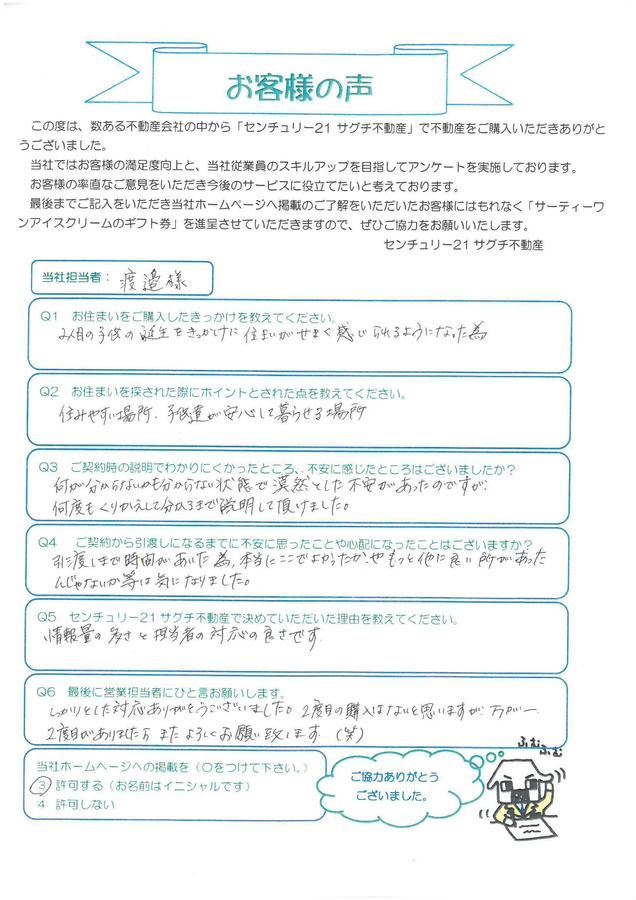 お客様の声
この度は、数ある不動産会社の中から「センチュリー21 サグチ不動産」で不動産をご購入いただきありがと
うございました。
当社ではお客様の満足度向上と、当社従業員のスキルアップを目指してアンケートを実施しております。
お客様の率直なご意見をいただき今後のサービスに役立てたいと考えております。
最後までご記入をいただき当社ホームページへ掲載のご了解をいただいたお客様にはもれなく「サーティーワ
ンアイスクリームのギフト券」を進呈させていただきますので、ぜひご協力をお願いいたします。
センチュリー21 サグチ不動産
当社担当者： 渡邉様
Q1 お住まいをご購入したきっかけを教えてください。
2人目の子供の誕生をきっかけに住まいがせまく感じられるようになった為
Q2 お住まいを探された際にポイントとされた点を教えてください。
住みやすい場所、子供達が安心して暮らせる場所
Q3 ご契約時の説明でわかりにくかったところ、不安に感じたところはございましたか？
何が分からないかも分からない状態で漠然とした不安があったのですが、
何度もくりかえして分かるまで説明して頂けました。
Q4 ご契約から引渡しになるまでに不安に思ったことや心配になったことはございますか？
引き渡しまで時間があいた為、本当にここでよかったか、やもっと他に良い所があった
んじゃないか等は気になりました。
Q5 センチュリー21 サグチ不動産で決めていただいた理由を教えてください。
情報量の多さと担当者の対応の良さです
Q6 最後に営業担当者にひと言お願いします。
しっかりとした対応ありがとうございました。2度目の購入はないと思いますが、万が一
2度目がありましたら またよろしくお願い致します（笑）
当社ホームページへの掲載を（〇をつけて下さい。）
3 許可する（お名前はイニシャルです）
4 許可しない
ご協力ありがとう
ございました。
ふむふむ